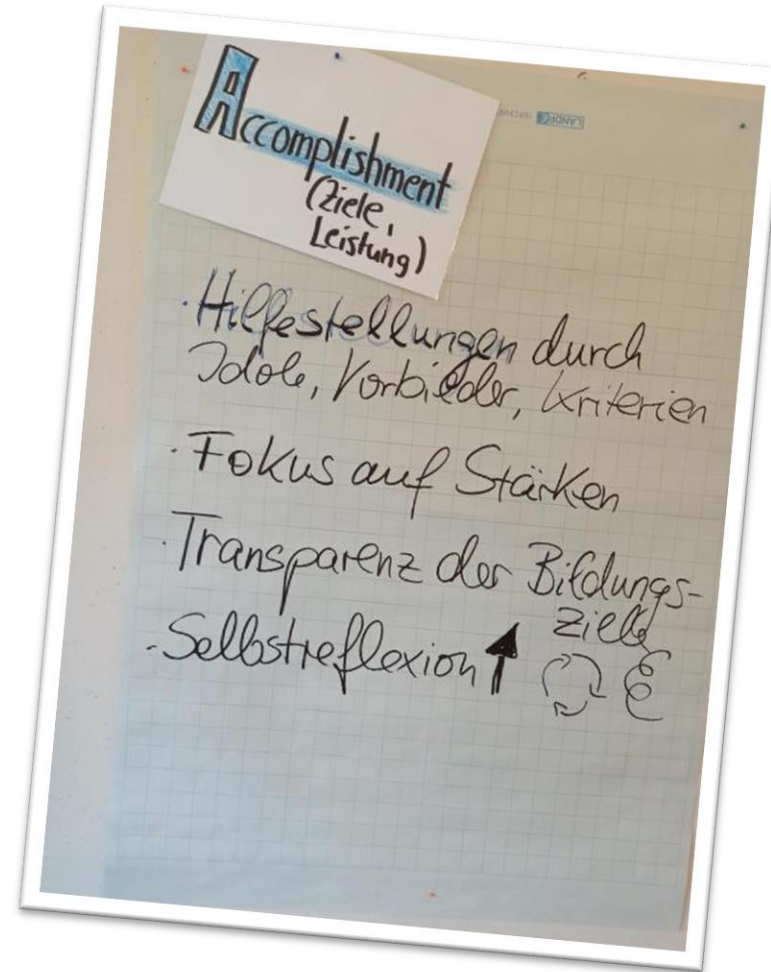 Accomplishment
(Ziele,
Leistung)
LANDRÉ
· Hilfestellungen durch
Idole, Vorbilder, Kriterien
· Fokus auf Stärken
· Transparenz der Bildungs-
ziele
· Selbstreflexion